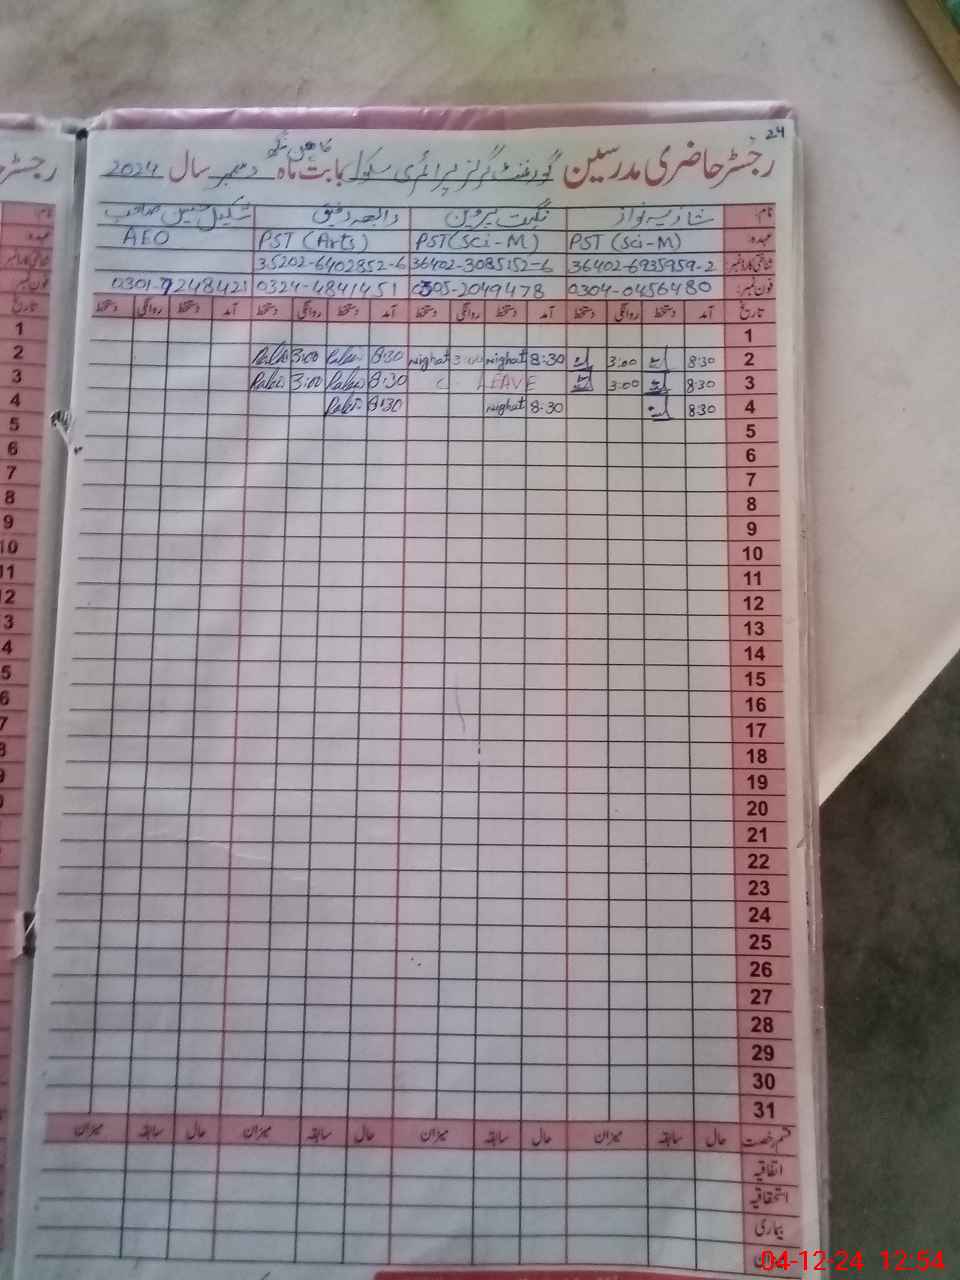 24
رجسٹر حاضری مدرسین گورنمنٹ گرلز پرائمری سکول بابت ماہ دسمبر سال 2024
نام: شازیہ نواز نگہت پروین رابعہ رفیق شکیل صاحب
عہدہ: PST (Sci-M) PST (Sci-M) PST (Arts) AEO
شناختی کارڈ نمبر: 36402-6935959-2 36402-3085152-6 35202-6402852-6
فون نمبر: 0304-0456480 0305-2049478 0324-4841451 0301-7248421
تاریخ آمد دستخط روانگی دستخط آمد دستخط روانگی دستخط آمد دستخط روانگی دستخط آمد دستخط روانگی دستخط تاریخ
1 1
2 8:30 3:00 8:30 Nighat 3:00 Nighat 8:30 3:00 2
3 8:30 3:00 C. LEAVE 8:30 3:00 3
4 8:30 8:30 Nighat 8:30 4
5 5
6 6
7 7
8 8
9 9
10 10
11 11
12 12
13 3
14 4
15 5
16 6
17 7
18 8
19 9
20
21
22
23
24
25
26
27
28
29
30
31
قسم رخصت حال سابقہ میزان حال سابقہ میزان حال سابقہ میزان حال سابقہ میزان
اتفاقیہ
استحقاقیہ
بیماری
04-12-24 12:54